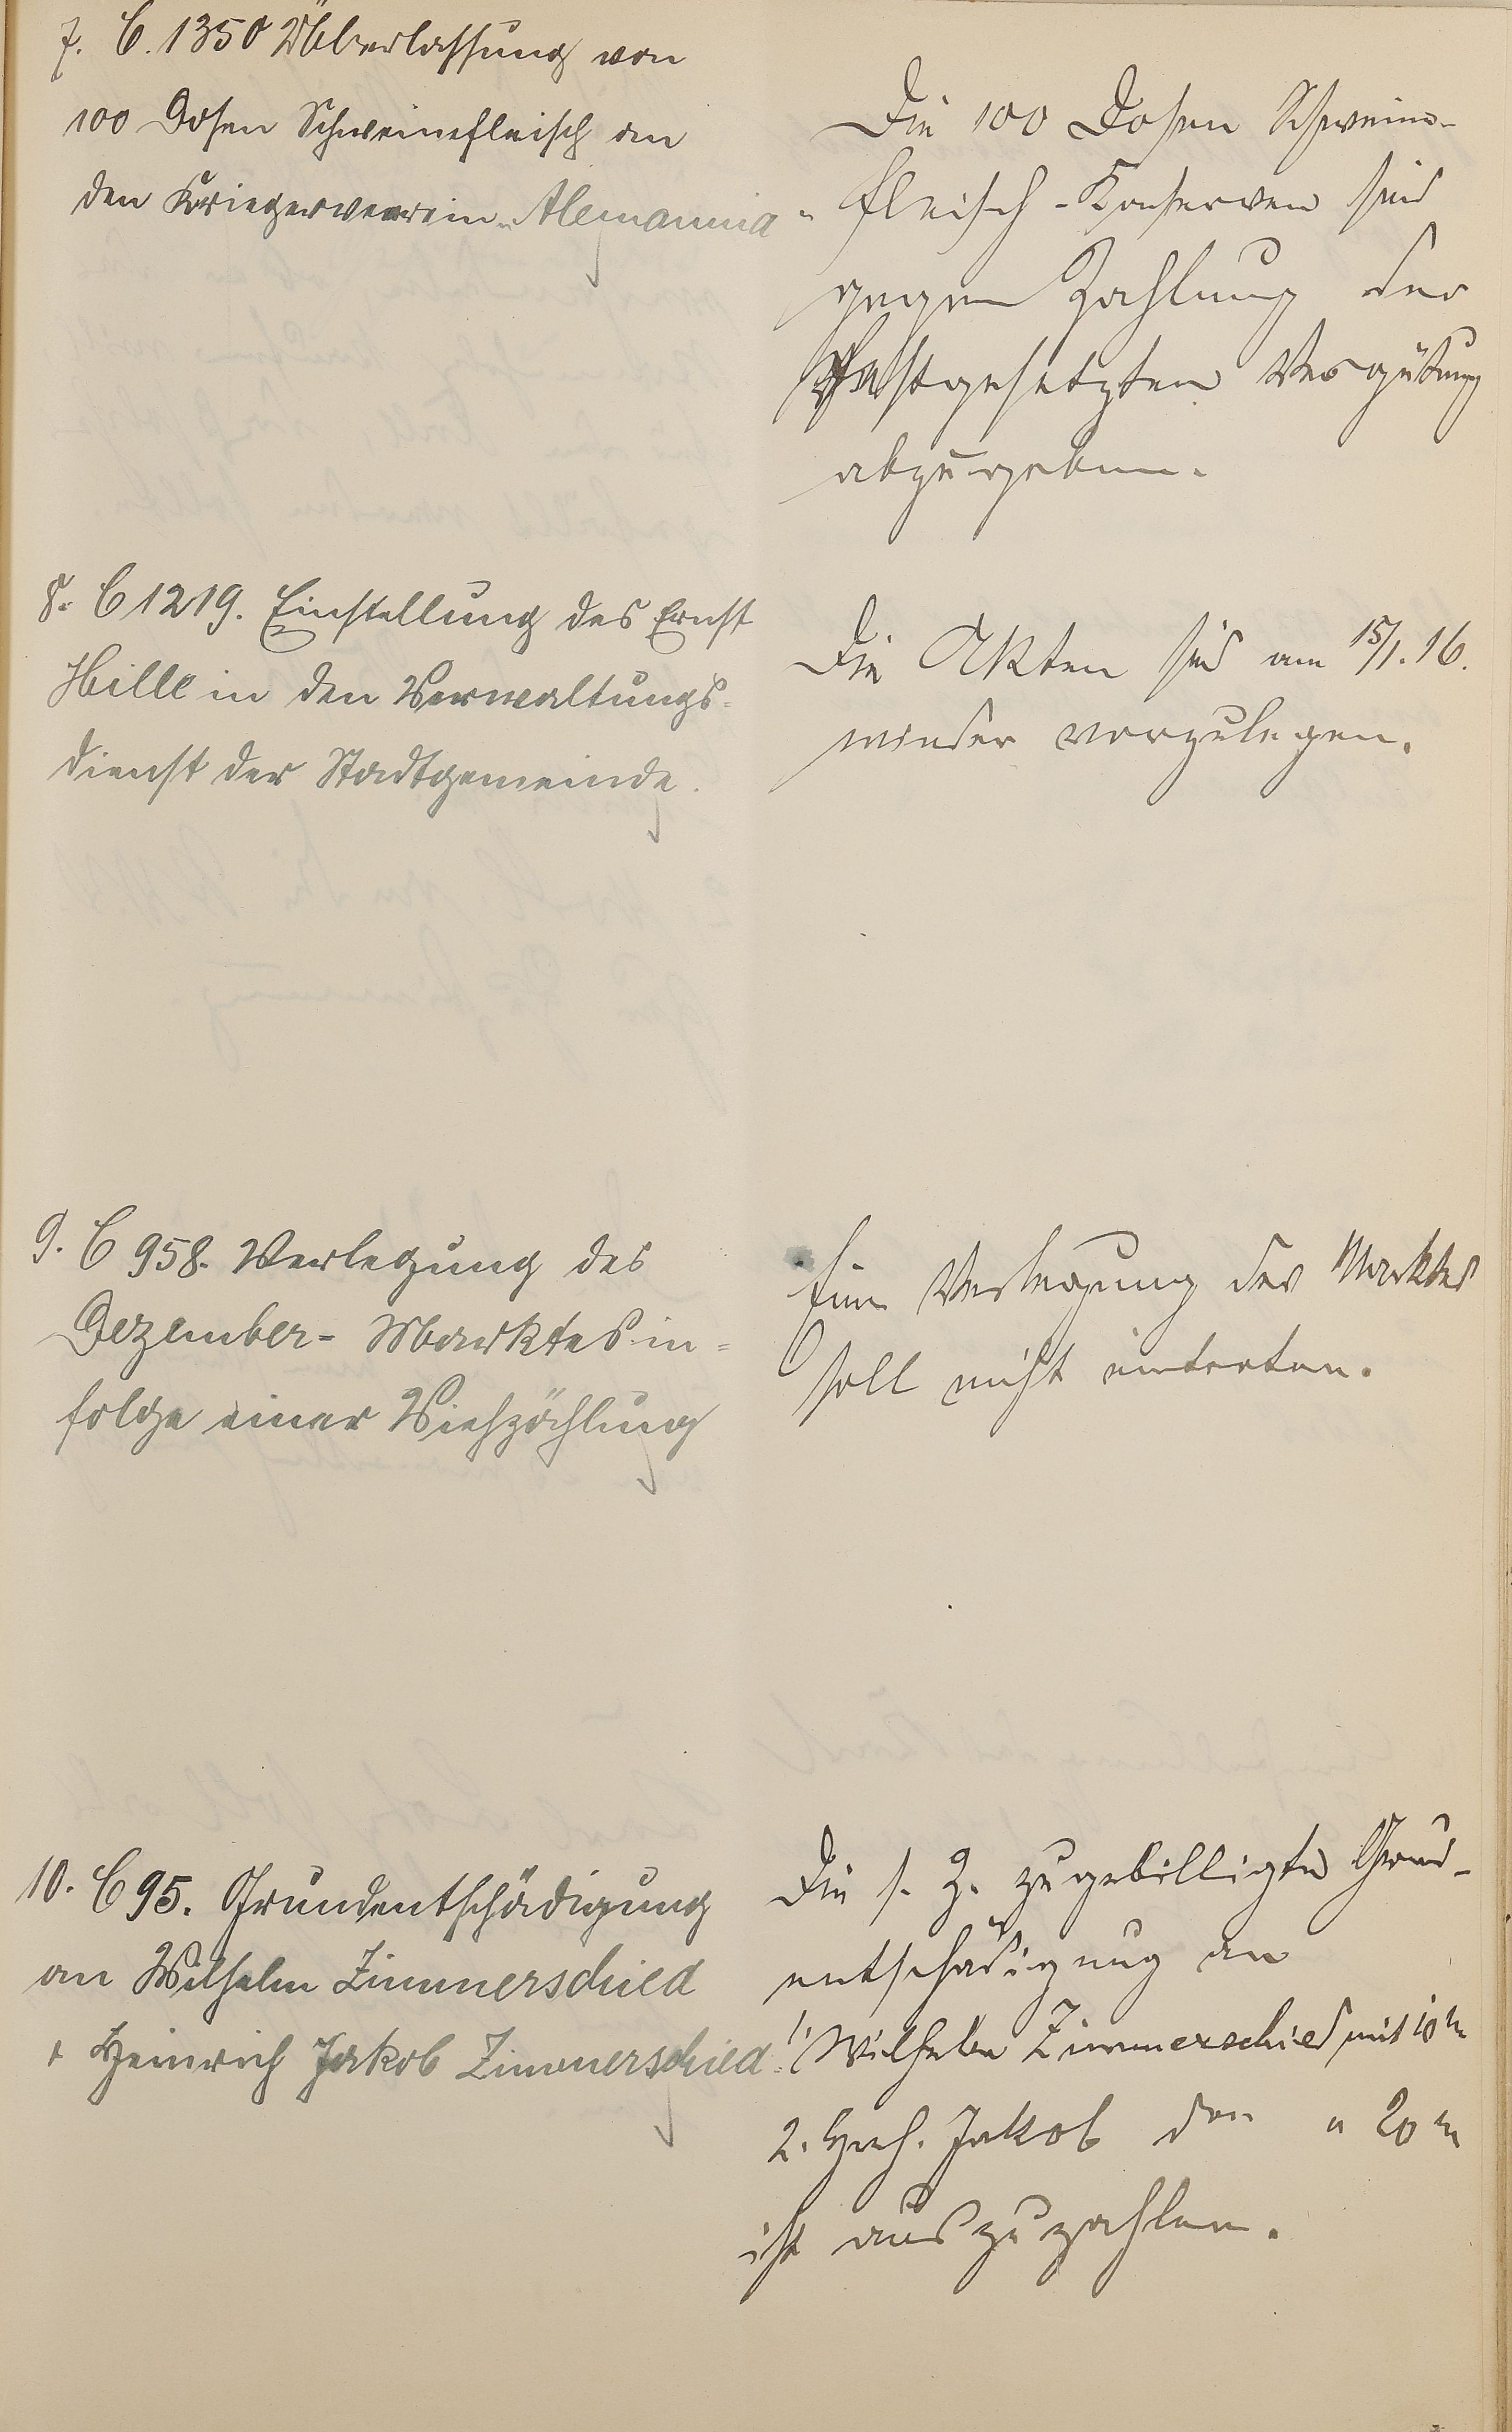 7. C. 1350 Überlassung von
100 Dosen Schweinefleisch an
den Kriegerverein „Alemannia“
Die 100 Dosen Schweine-
fleisch-Konserven sind
gegen Zahlung der
festgesetzten Vergütung
abzugeben.
8. C 1219. Einstellung des Ernst
Hille in den Verwaltungs-
dienst der Stadtgemeinde.
Die Akten sind am 15/1. 16.
wieder vorzulegen.
9. C 958. Verlegung des
Dezember-Marktes in-
folge einer Viehzählung
Eine Verlegung des Marktes
soll nicht eintreten.
10. C 95. Grundentschädigung
an Wilhelm Zimmerschied
+ Heinrich Jakob Zimmerschied.
Die s. Z. zugebilligte Grund-
entschädigung an
1. Wilhelm Zimmerschied mit 10 M
2. Hrch. Jakob " 20 M
ist auszuzahlen.